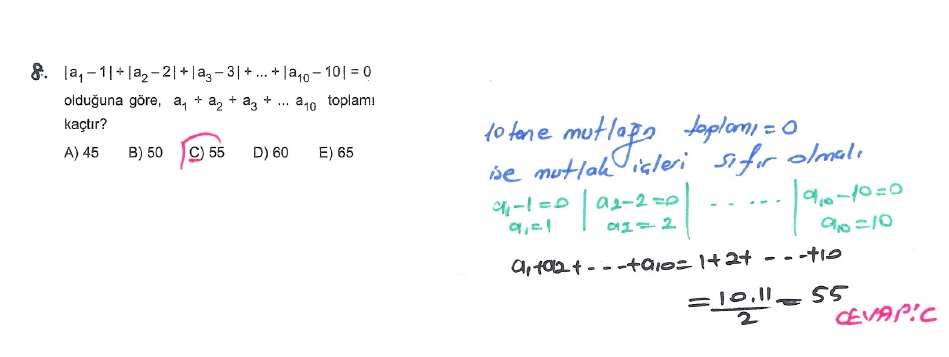 8. |a₁ – 1| + |a₂ – 2| + |a₃ – 3| + ... + |a₁₀ – 10| = 0
olduğuna göre, a₁ + a₂ + a₃ + ... a₁₀ toplamı
kaçtır?
A) 45 B) 50 C) 55 D) 60 E) 65
10 tane mutlağın toplamı = 0
ise mutlak içleri sıfır olmalı
a₁-1=0 | a₂-2=0 | ...... | a₁₀-10=0
a₁=1 a₂=2 a₁₀=10
a₁+a₂+---+a₁₀=1+2+---+10
=10.11/2=55
CEVAP:C